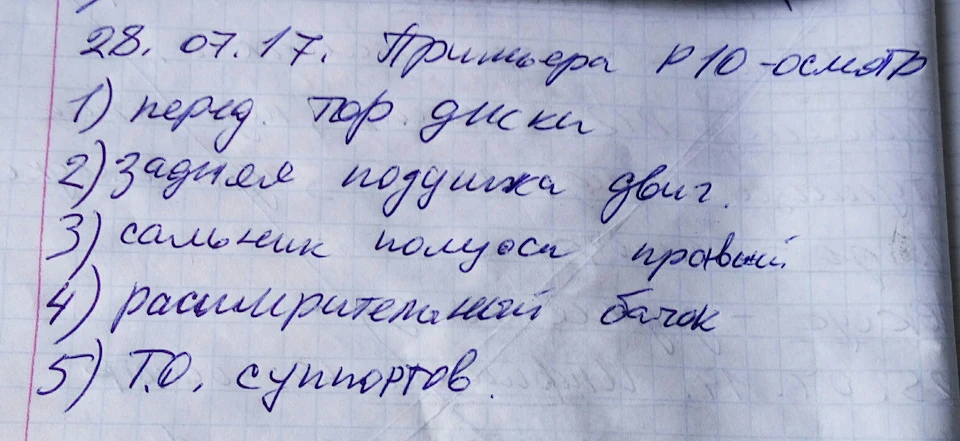 28. 07. 17. Примьера Р10 - осмотр
1) перед. тор. диски
2) задняя подушка двиг.
3) сальник полуоси правый
4) расширительный бачок
5) Т.О. суппортов.